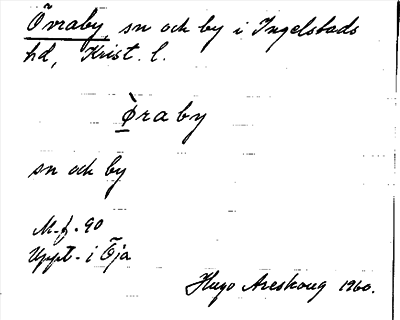 Övraby, sn och by i Ingelstads
hd, Krist. l.
Ø̀raby
sn och by
M.f. 90
Uppt. i Öja
Hugo Areskoug 1960.